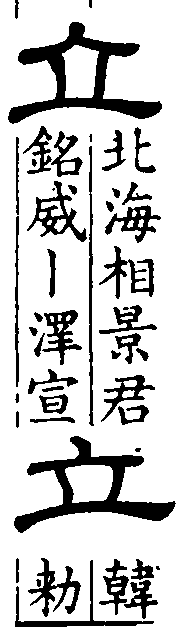 立
北海相景君
銘威丨澤宣
立
韓
勑